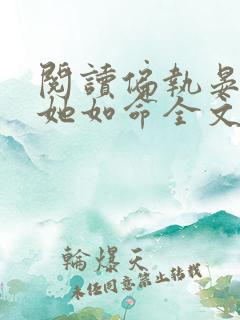 閱讀偏執晏
她如命全文
輪爆天
未經同意禁止轉載